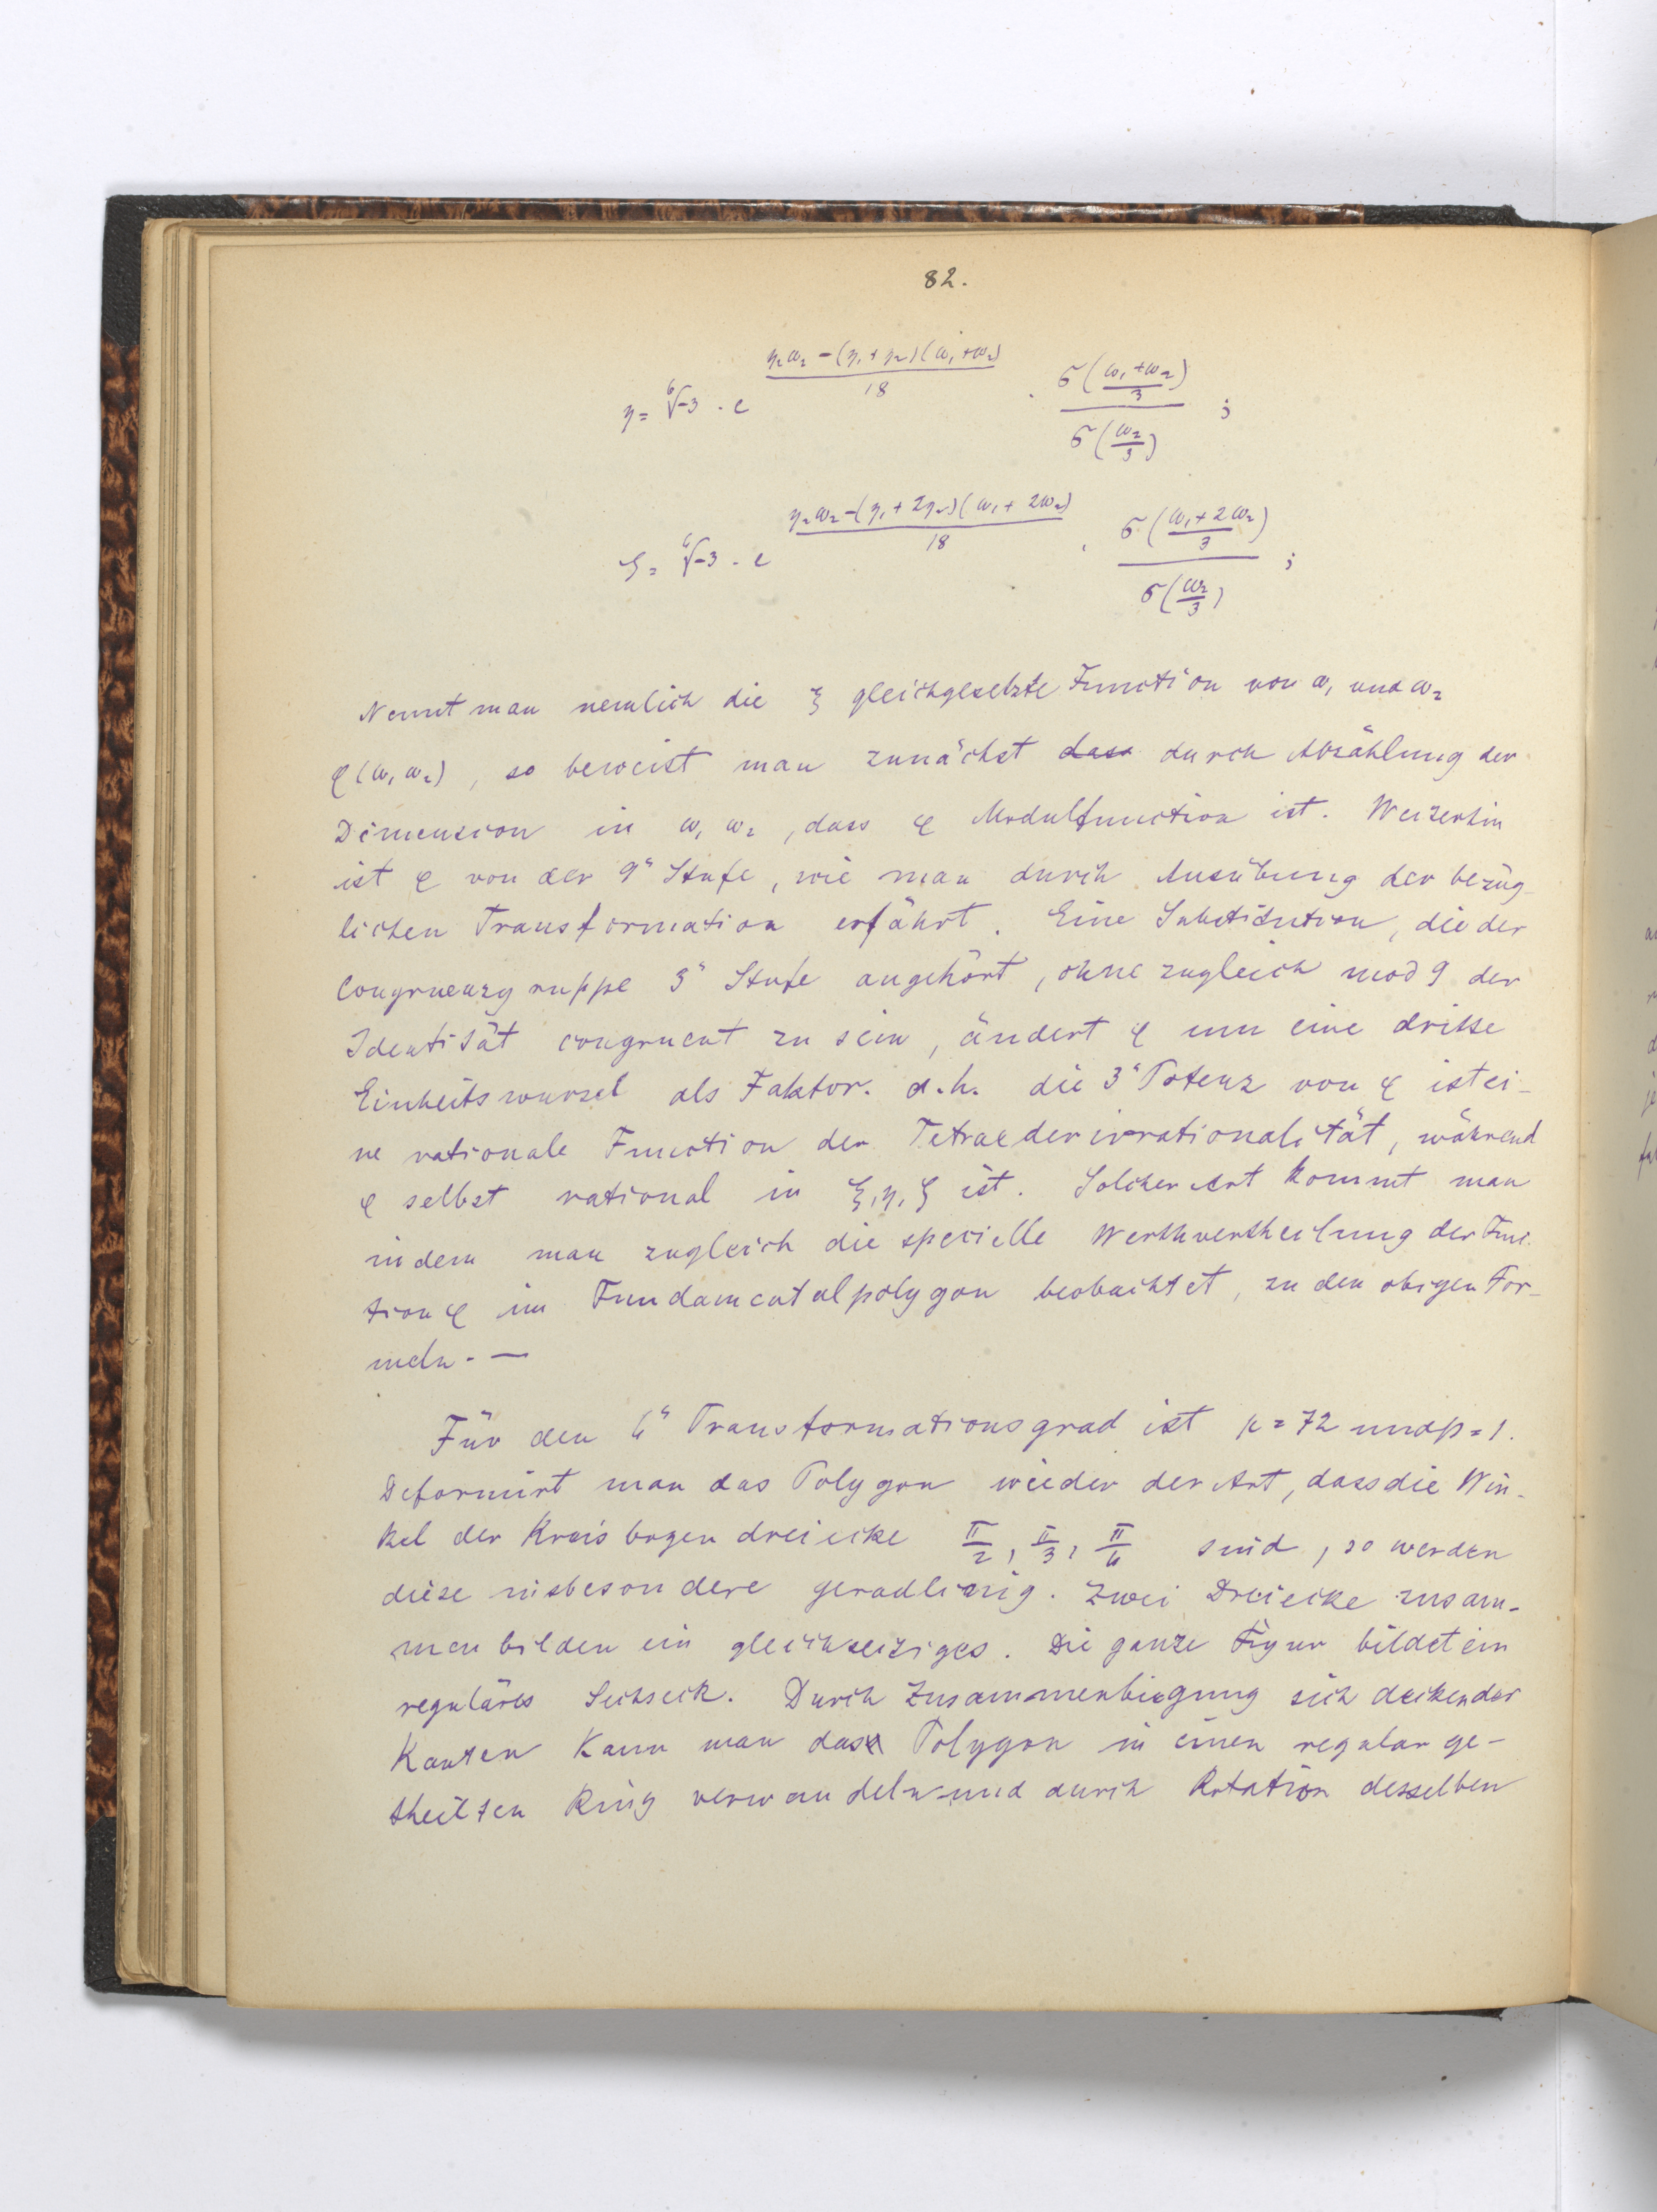 82.
η = ⁶√-3 · e^{(η₂ω₂ - (η₁+η₂)(ω₁+ω₂))/18} · σ((ω₁+ω₂)/3) / σ(ω₂/3) ;
ζ = ⁶√-3 · e^{(η₂ω₂ - (η₁+2η₂)(ω₁+2ω₂))/18} · σ((ω₁+2ω₂)/3) / σ(ω₂/3) ;
Nennt man nemlich die ξ gleichgesetzte Function von ω₁ und ω₂
φ(ω₁ ω₂), so beweist man zunächst dass durch Abzählung der
Dimension in ω₁ ω₂, dass φ Modulfunction ist. Weiterhin
ist φ von der 9" Stufe, wie man durch Ausübung der bezüg-
lichen Transformation erfährt. Eine Substitution, die der
Congruenzgruppe 3" Stufe angehört, ohne zugleich mod 9 der
Identität congruent zu sein, ändert φ um eine dritte
Einheitswurzel als Faktor. d.h. die 3" Potenz von φ ist ei-
ne rationale Function der Tetraederirrationalität, während
φ selbst rational in ξ, η, ζ ist. Solcher Art kommt man
indem man zugleich die specielle Werthvertheilung der Func-
tion φ im Fundamentalpolygon beobachtet, zu den obigen For-
meln. —
Für den 6" Transformationsgrad ist μ = 72 und p = 1.
Deformirt man das Polygon wieder der Art, dass die Win-
kel der Kreisbogendreiecke π/2, π/3, π/6 sind, so werden
diese insbesondere geradlinig. Zwei Dreiecke zusam-
men bilden ein gleichseitiges. Die ganze Figur bildet ein
reguläres Sechseck. Durch Zusammenbiegung sich deckender
Kanten kann man das Polygon in einen regulär ge-
theilten Ring verwandeln und durch Rotation desselben